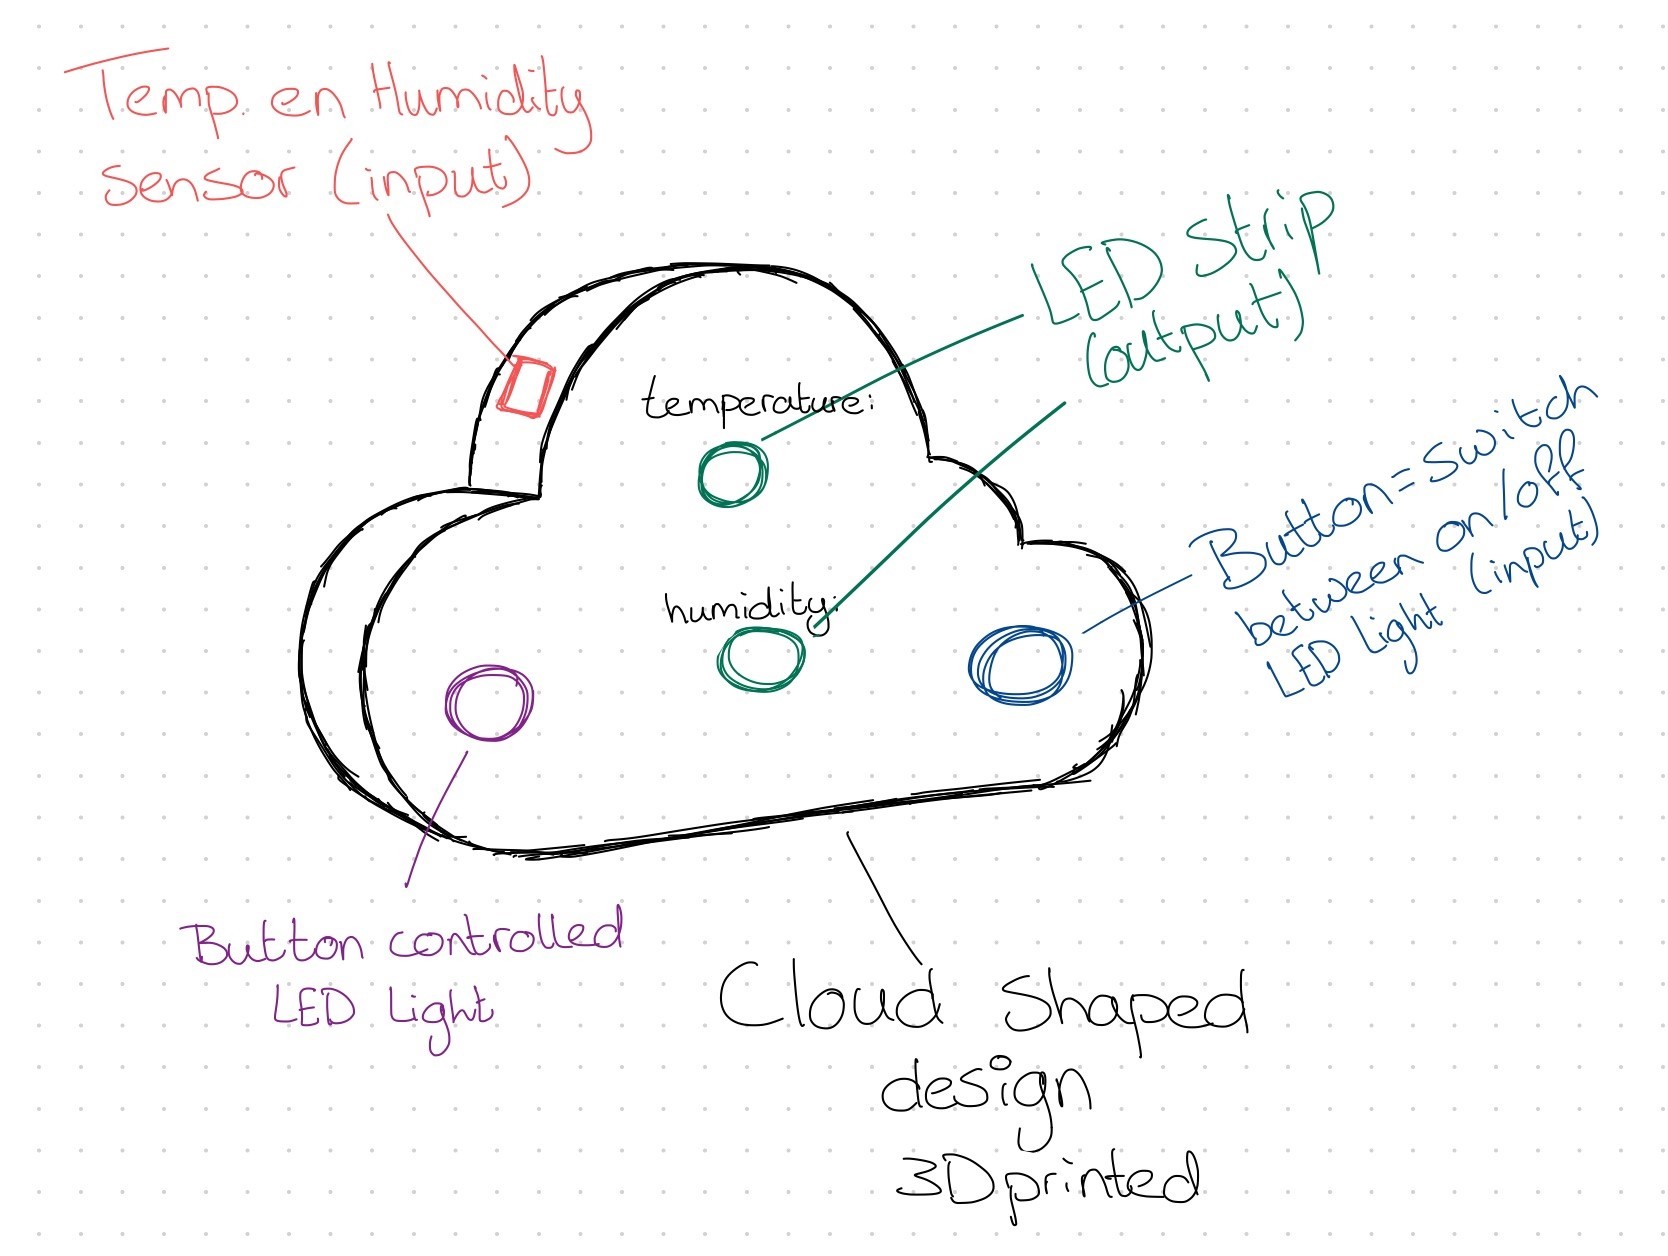 Temp. en Humidity
sensor (input)
LED strip
(output)
temperature:
Button = switch
between on/off
LED light (input)
humidity:
Button controlled
LED light
Cloud shaped
design
3D printed